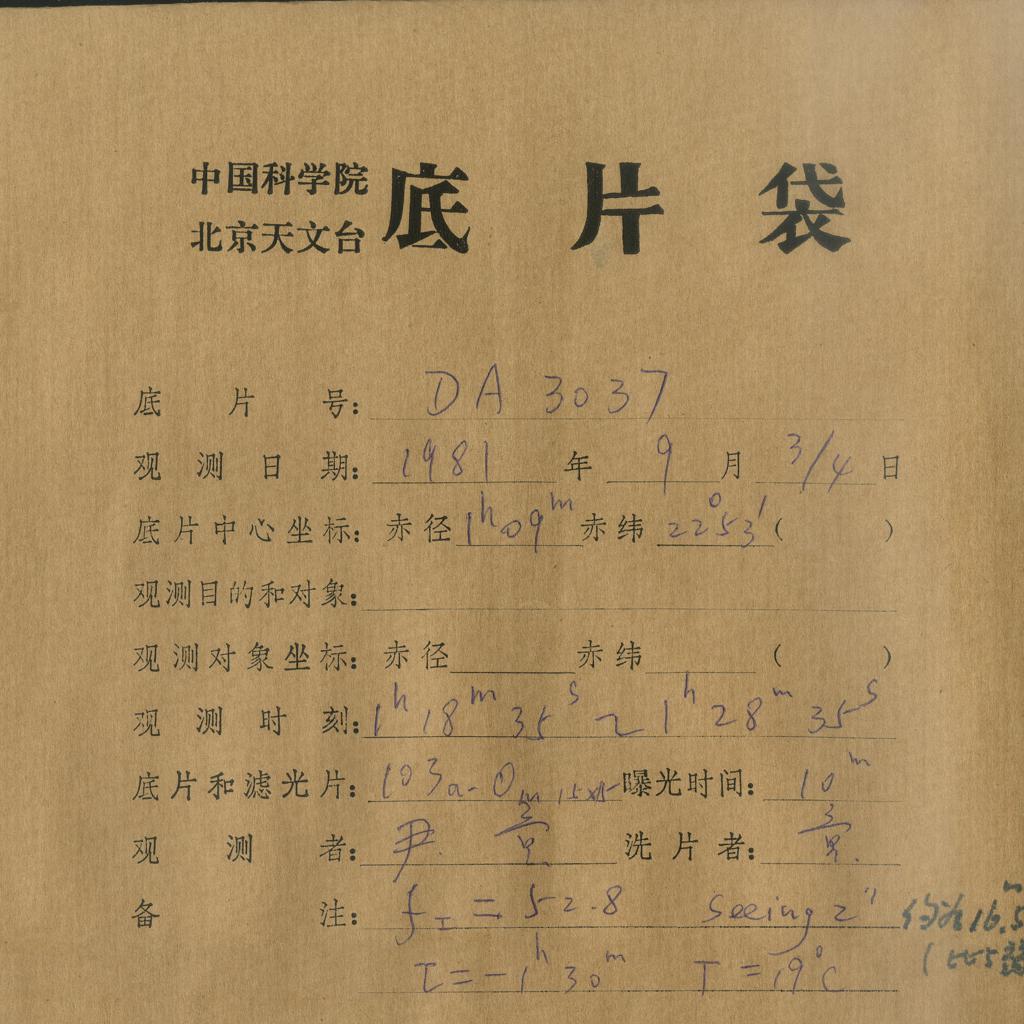 中国科学院
北京天文台
底片袋
底片号: DA 3037
观测日期: 1981 年 9 月 3/4 日
底片中心坐标: 赤径 1h09m 赤纬 22°53′ ( )
观测目的和对象:
观测对象坐标: 赤径 赤纬 ( )
观测时刻: 1h 18m 35s ~ 1h 28m 35s
底片和滤光片: 103a-O 曝光时间: 10m
观测者: 尹 洗片者:
备注: fI = 52.8 Seeing 2″
16.5
τ = -1h 30m T = 19°C